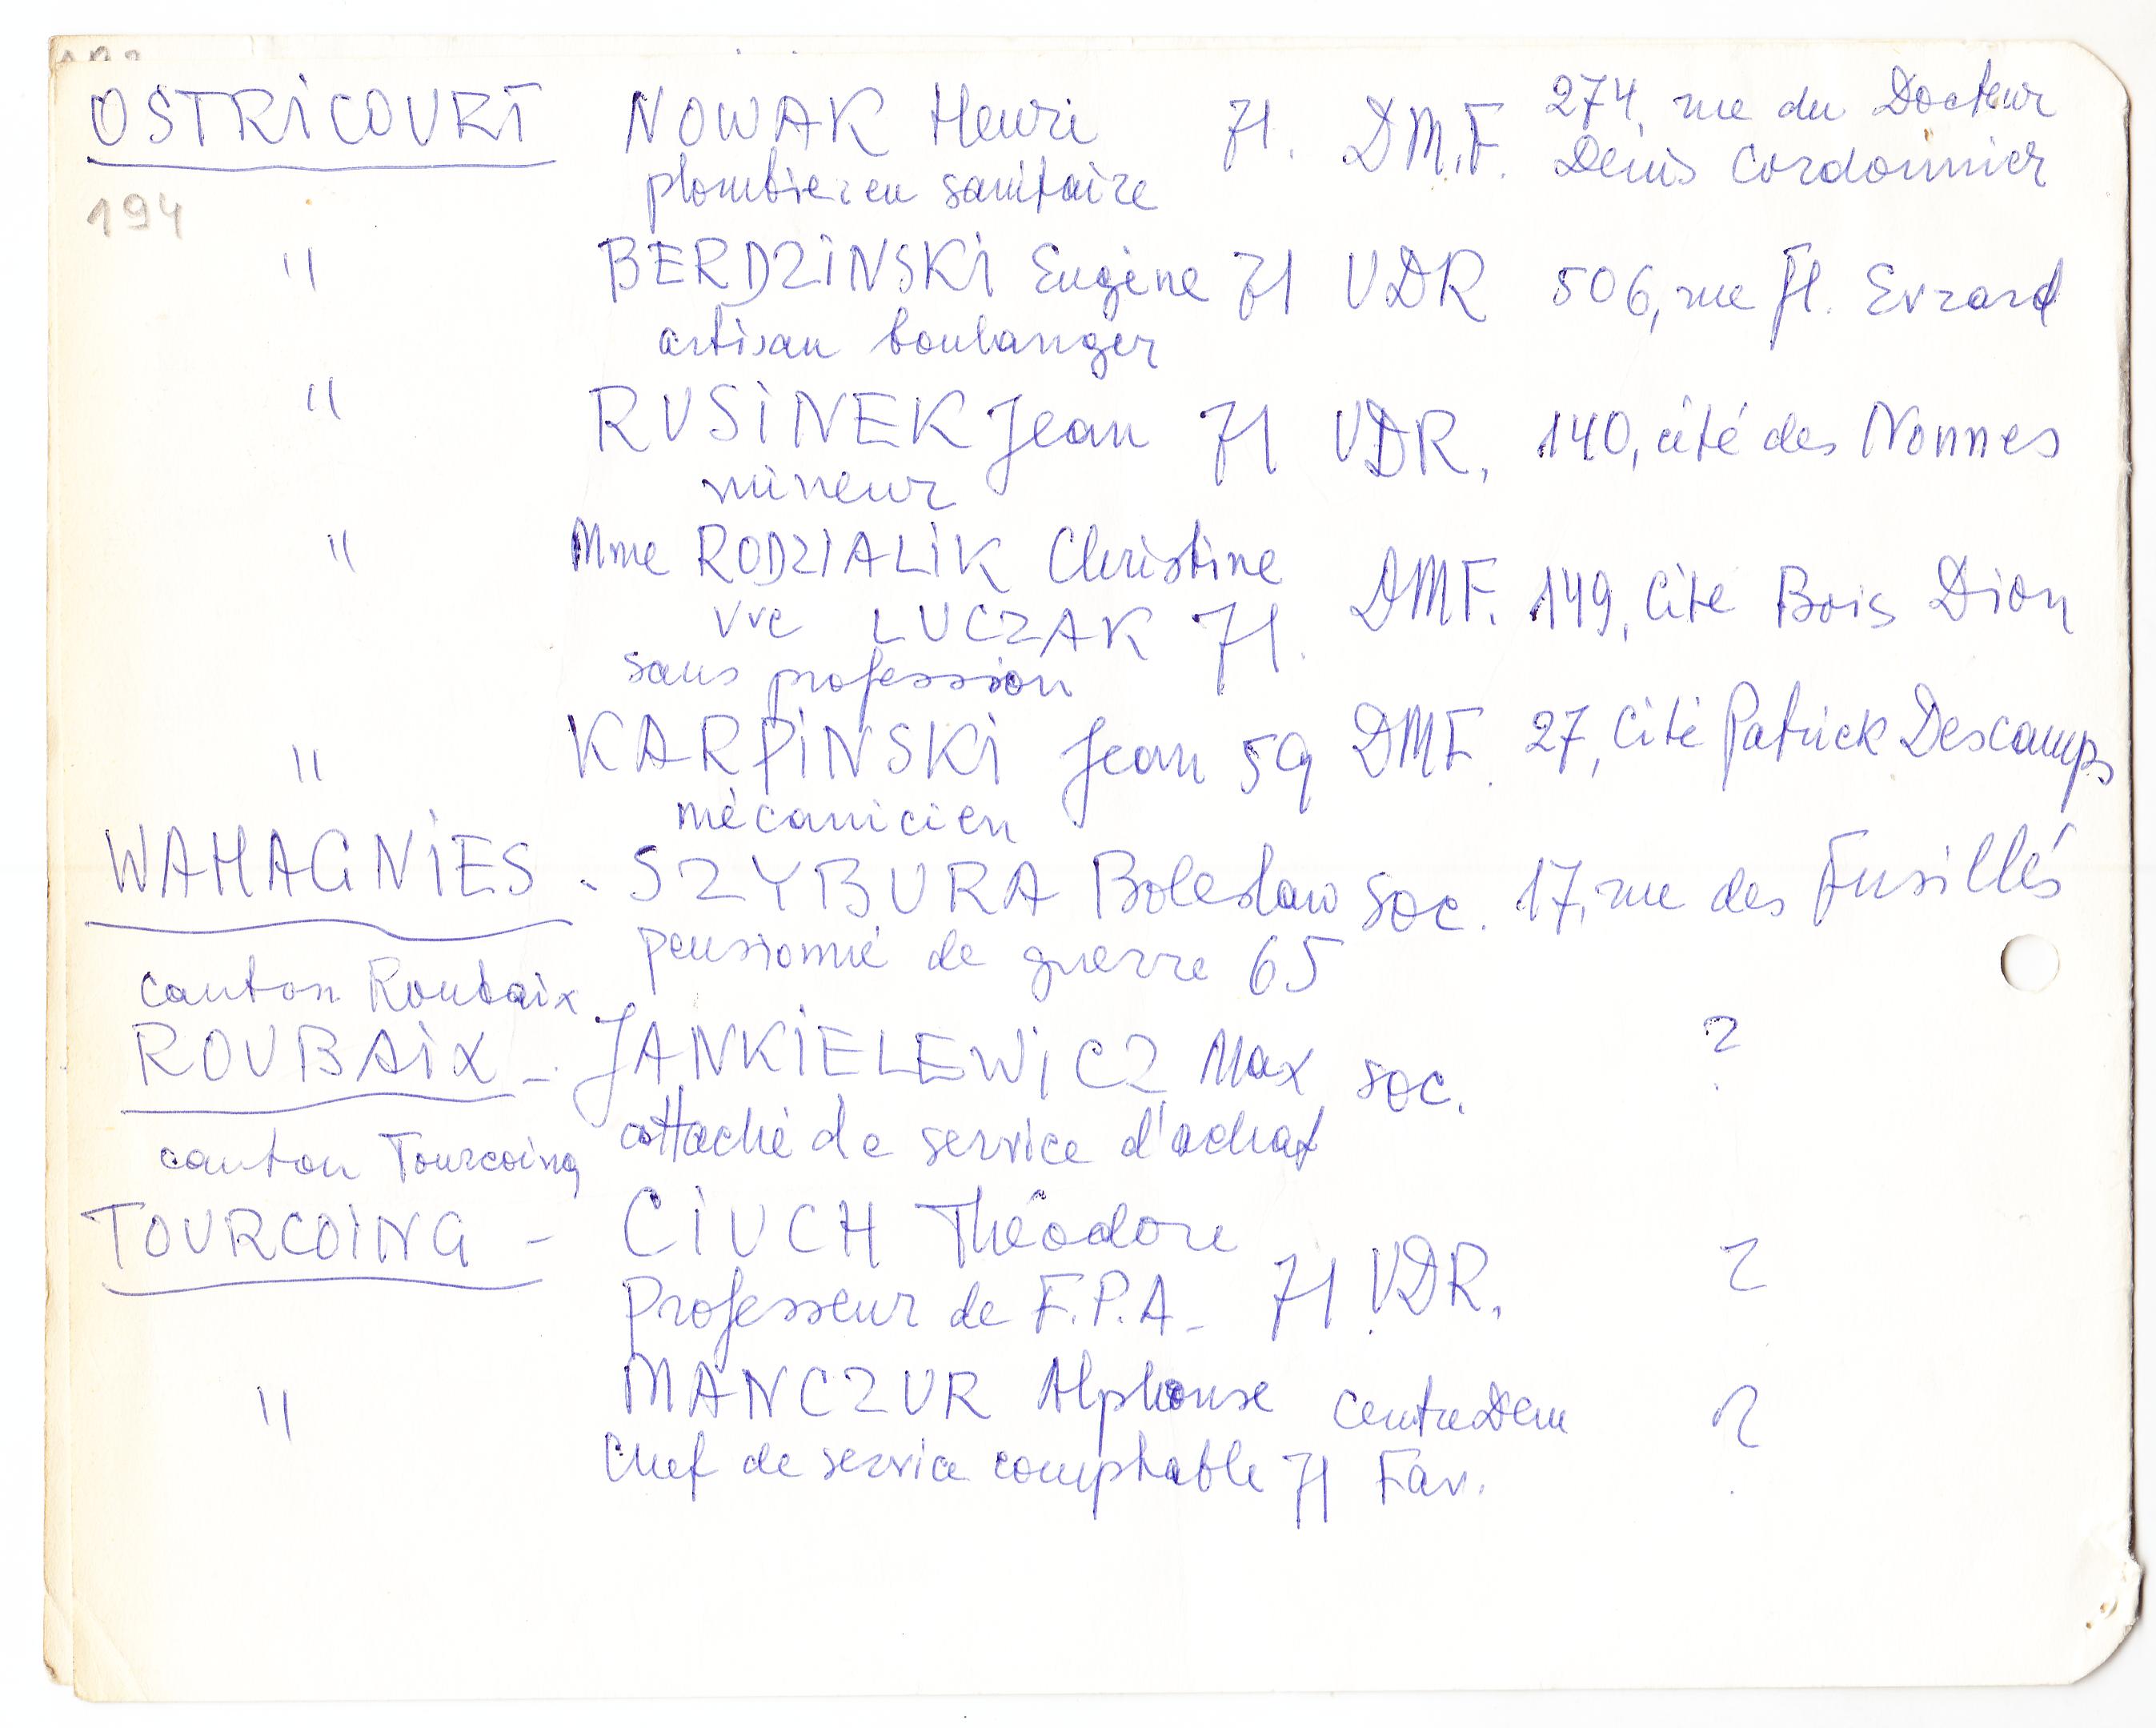 OSTRICOURT NOWAK Henri 71. DM.F. 274, rue du Docteur
plombier en sanitaire Denis Cordonnier
194
" BERDZINSKI Eugène 71 VDR 506, rue Fl. Evrard
artisan boulanger
" RUSINEK Jean 71 VDR, 140, cité des Nonnes
mineur
" Mme RODZIALIK Christine DMF. 149, Cité Bois Dion
vve LUCZAK 71.
sans profession
" KARPINSKI Jean 59 DMF. 27, Cité Patrick Descamps
mécanicien
WAHAGNIES - SZYBURA Boleslaw soc. 17, rue des Fusillés
pensionné de guerre 65
canton Roubaix
ROUBAIX - JANKIELEWICZ Max soc. ?
attaché de service d'achat
canton Tourcoing
TOURCOING - CIUCH Théodore
Professeur de F.P.A - 71 VDR. ?
" MANCZUR Alphonse CentreDem ?
Chef de service comptable 71 Fav.